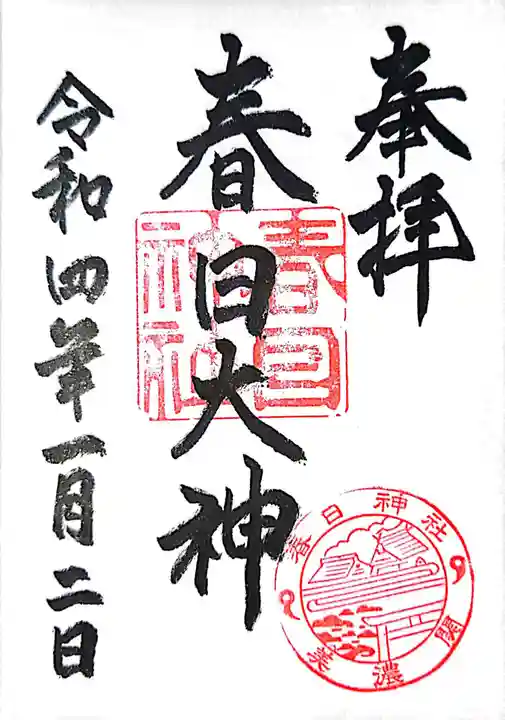 奉拝
春日大神
春日神社
令和四年一月二日
春日神社
美濃 関